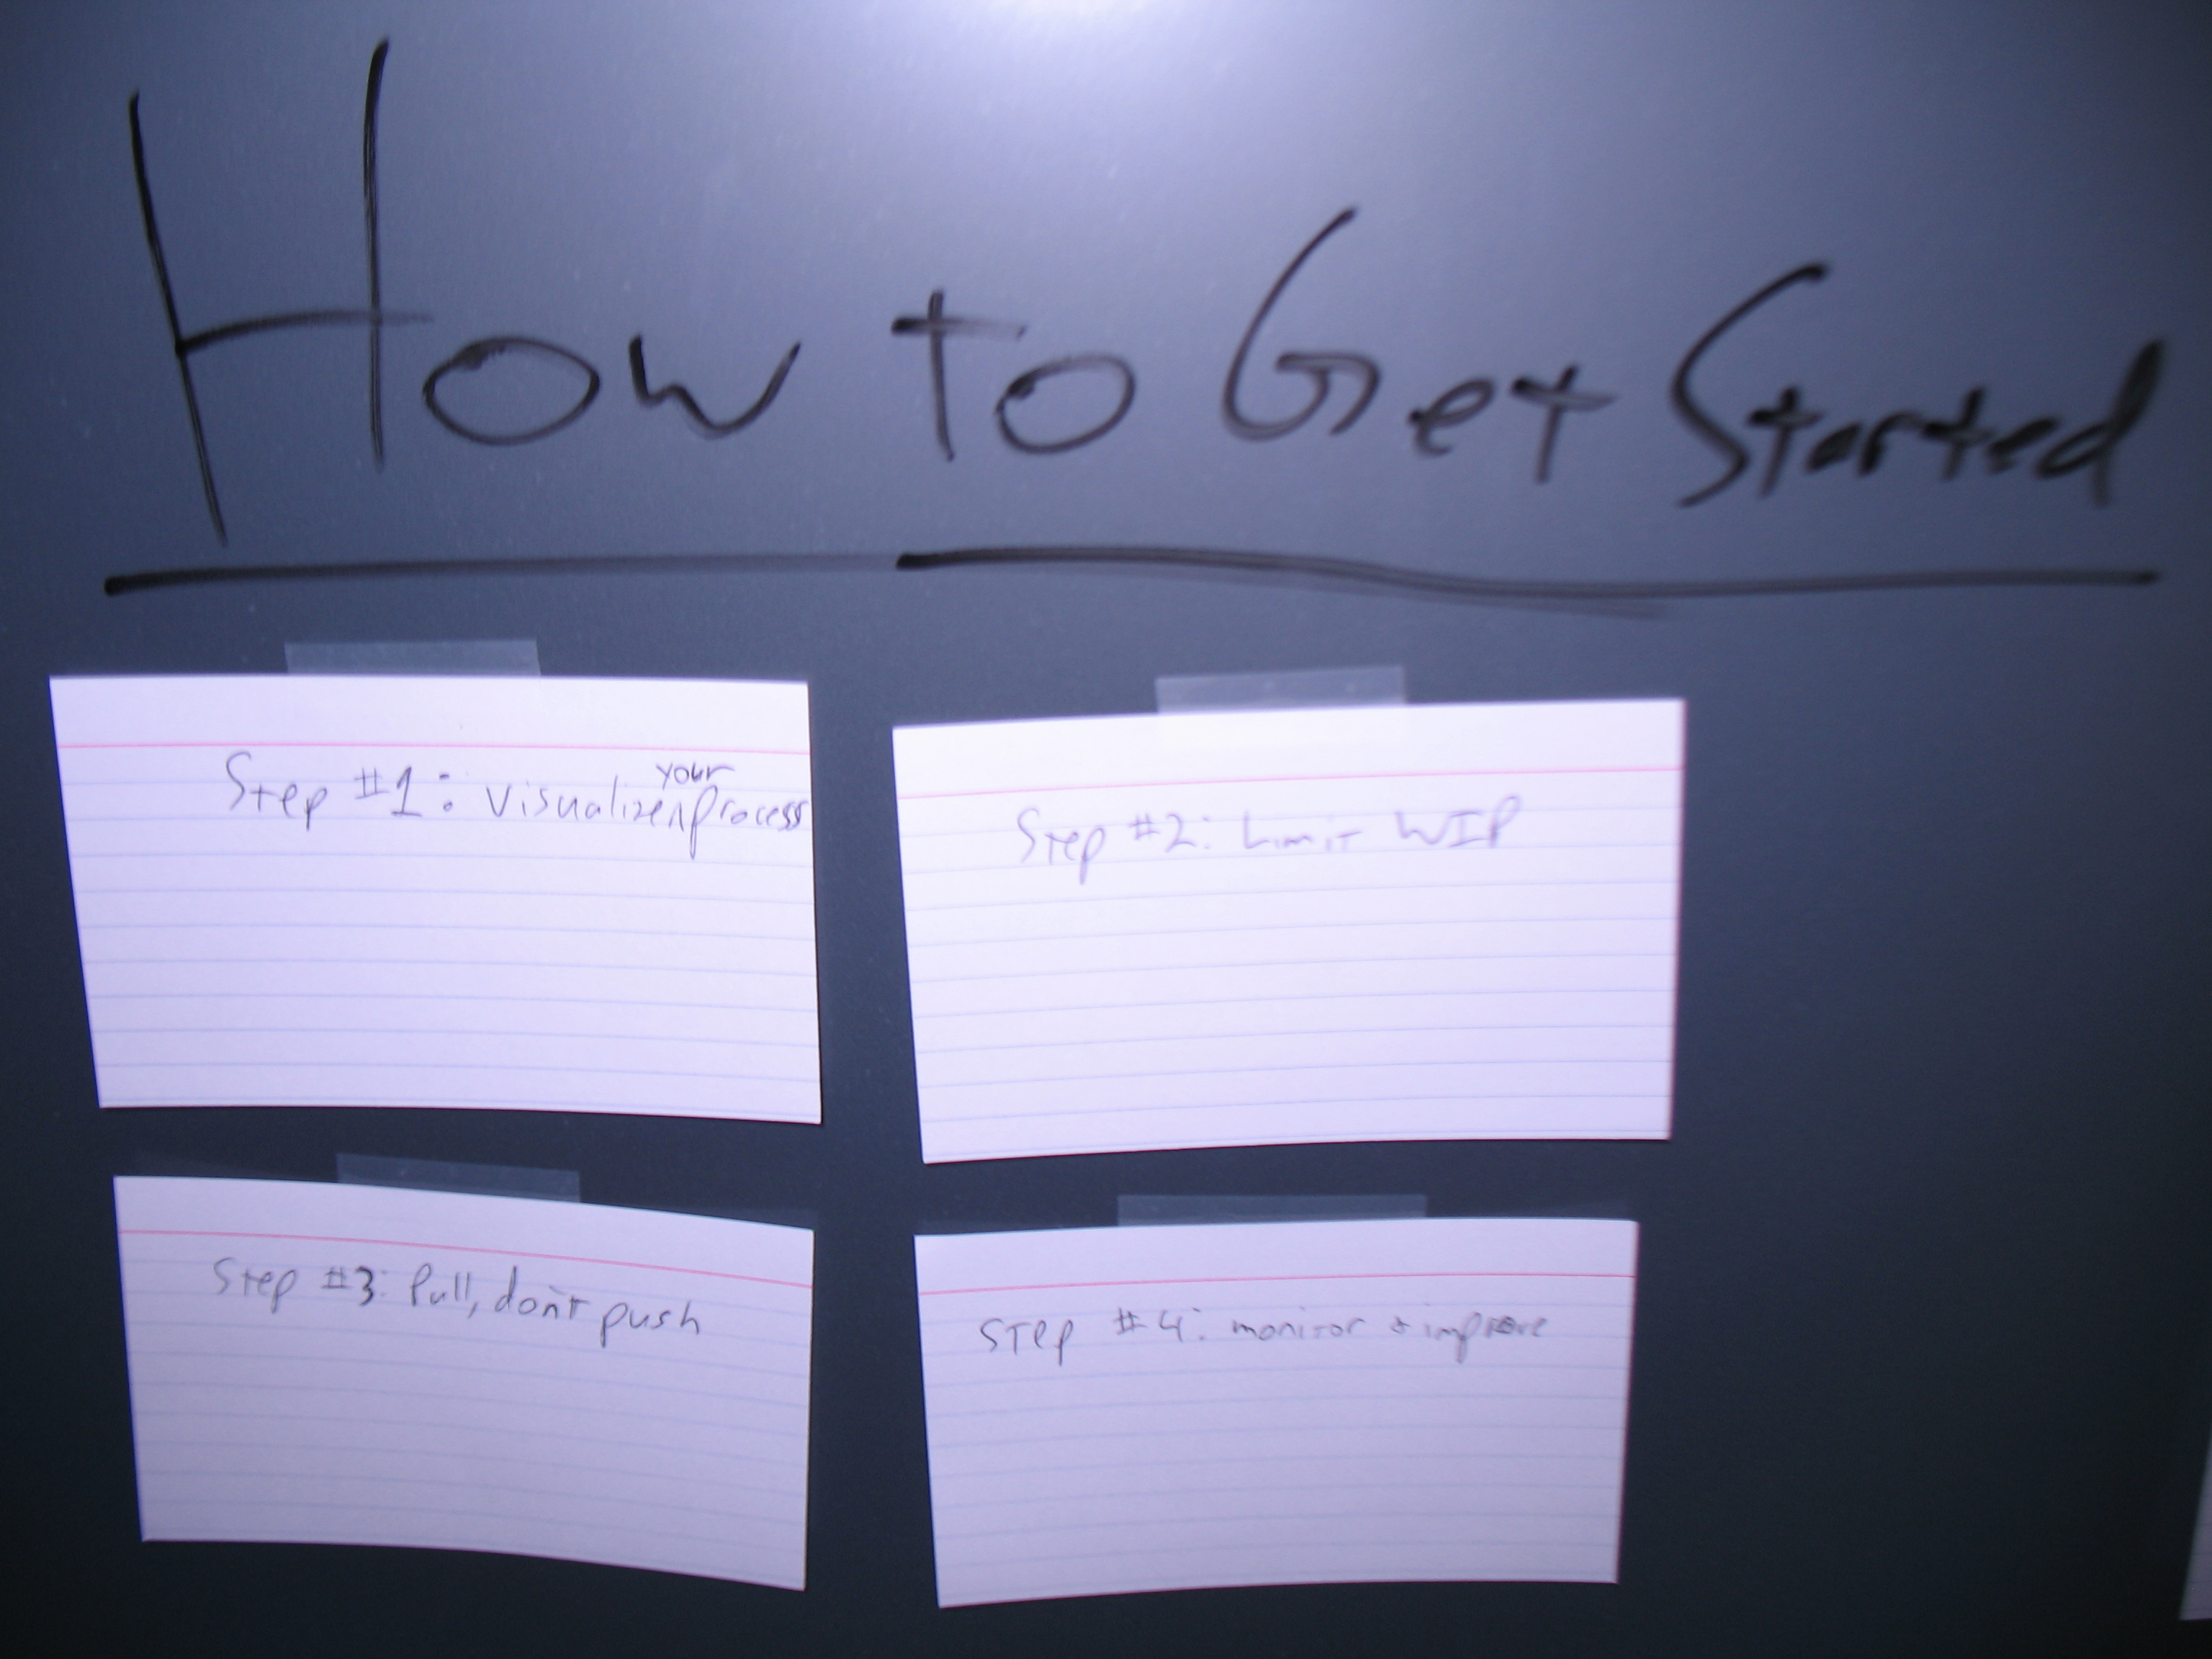 How to Get Started
Step #1: visualize your process
Step #2: Limit WIP
Step #3: Pull, don't push
Step #4: monitor & improve